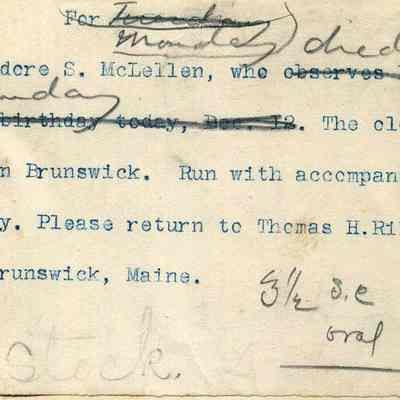 For Tuesday
Monday) died
dore S. McLellen, who observes
nday
birthday today, Dec. 12. The cl
n Brunswick. Run with accompan
y. Please return to Thomas H.Ri
runswick, Maine.
3½ s.c
oval
Stock.